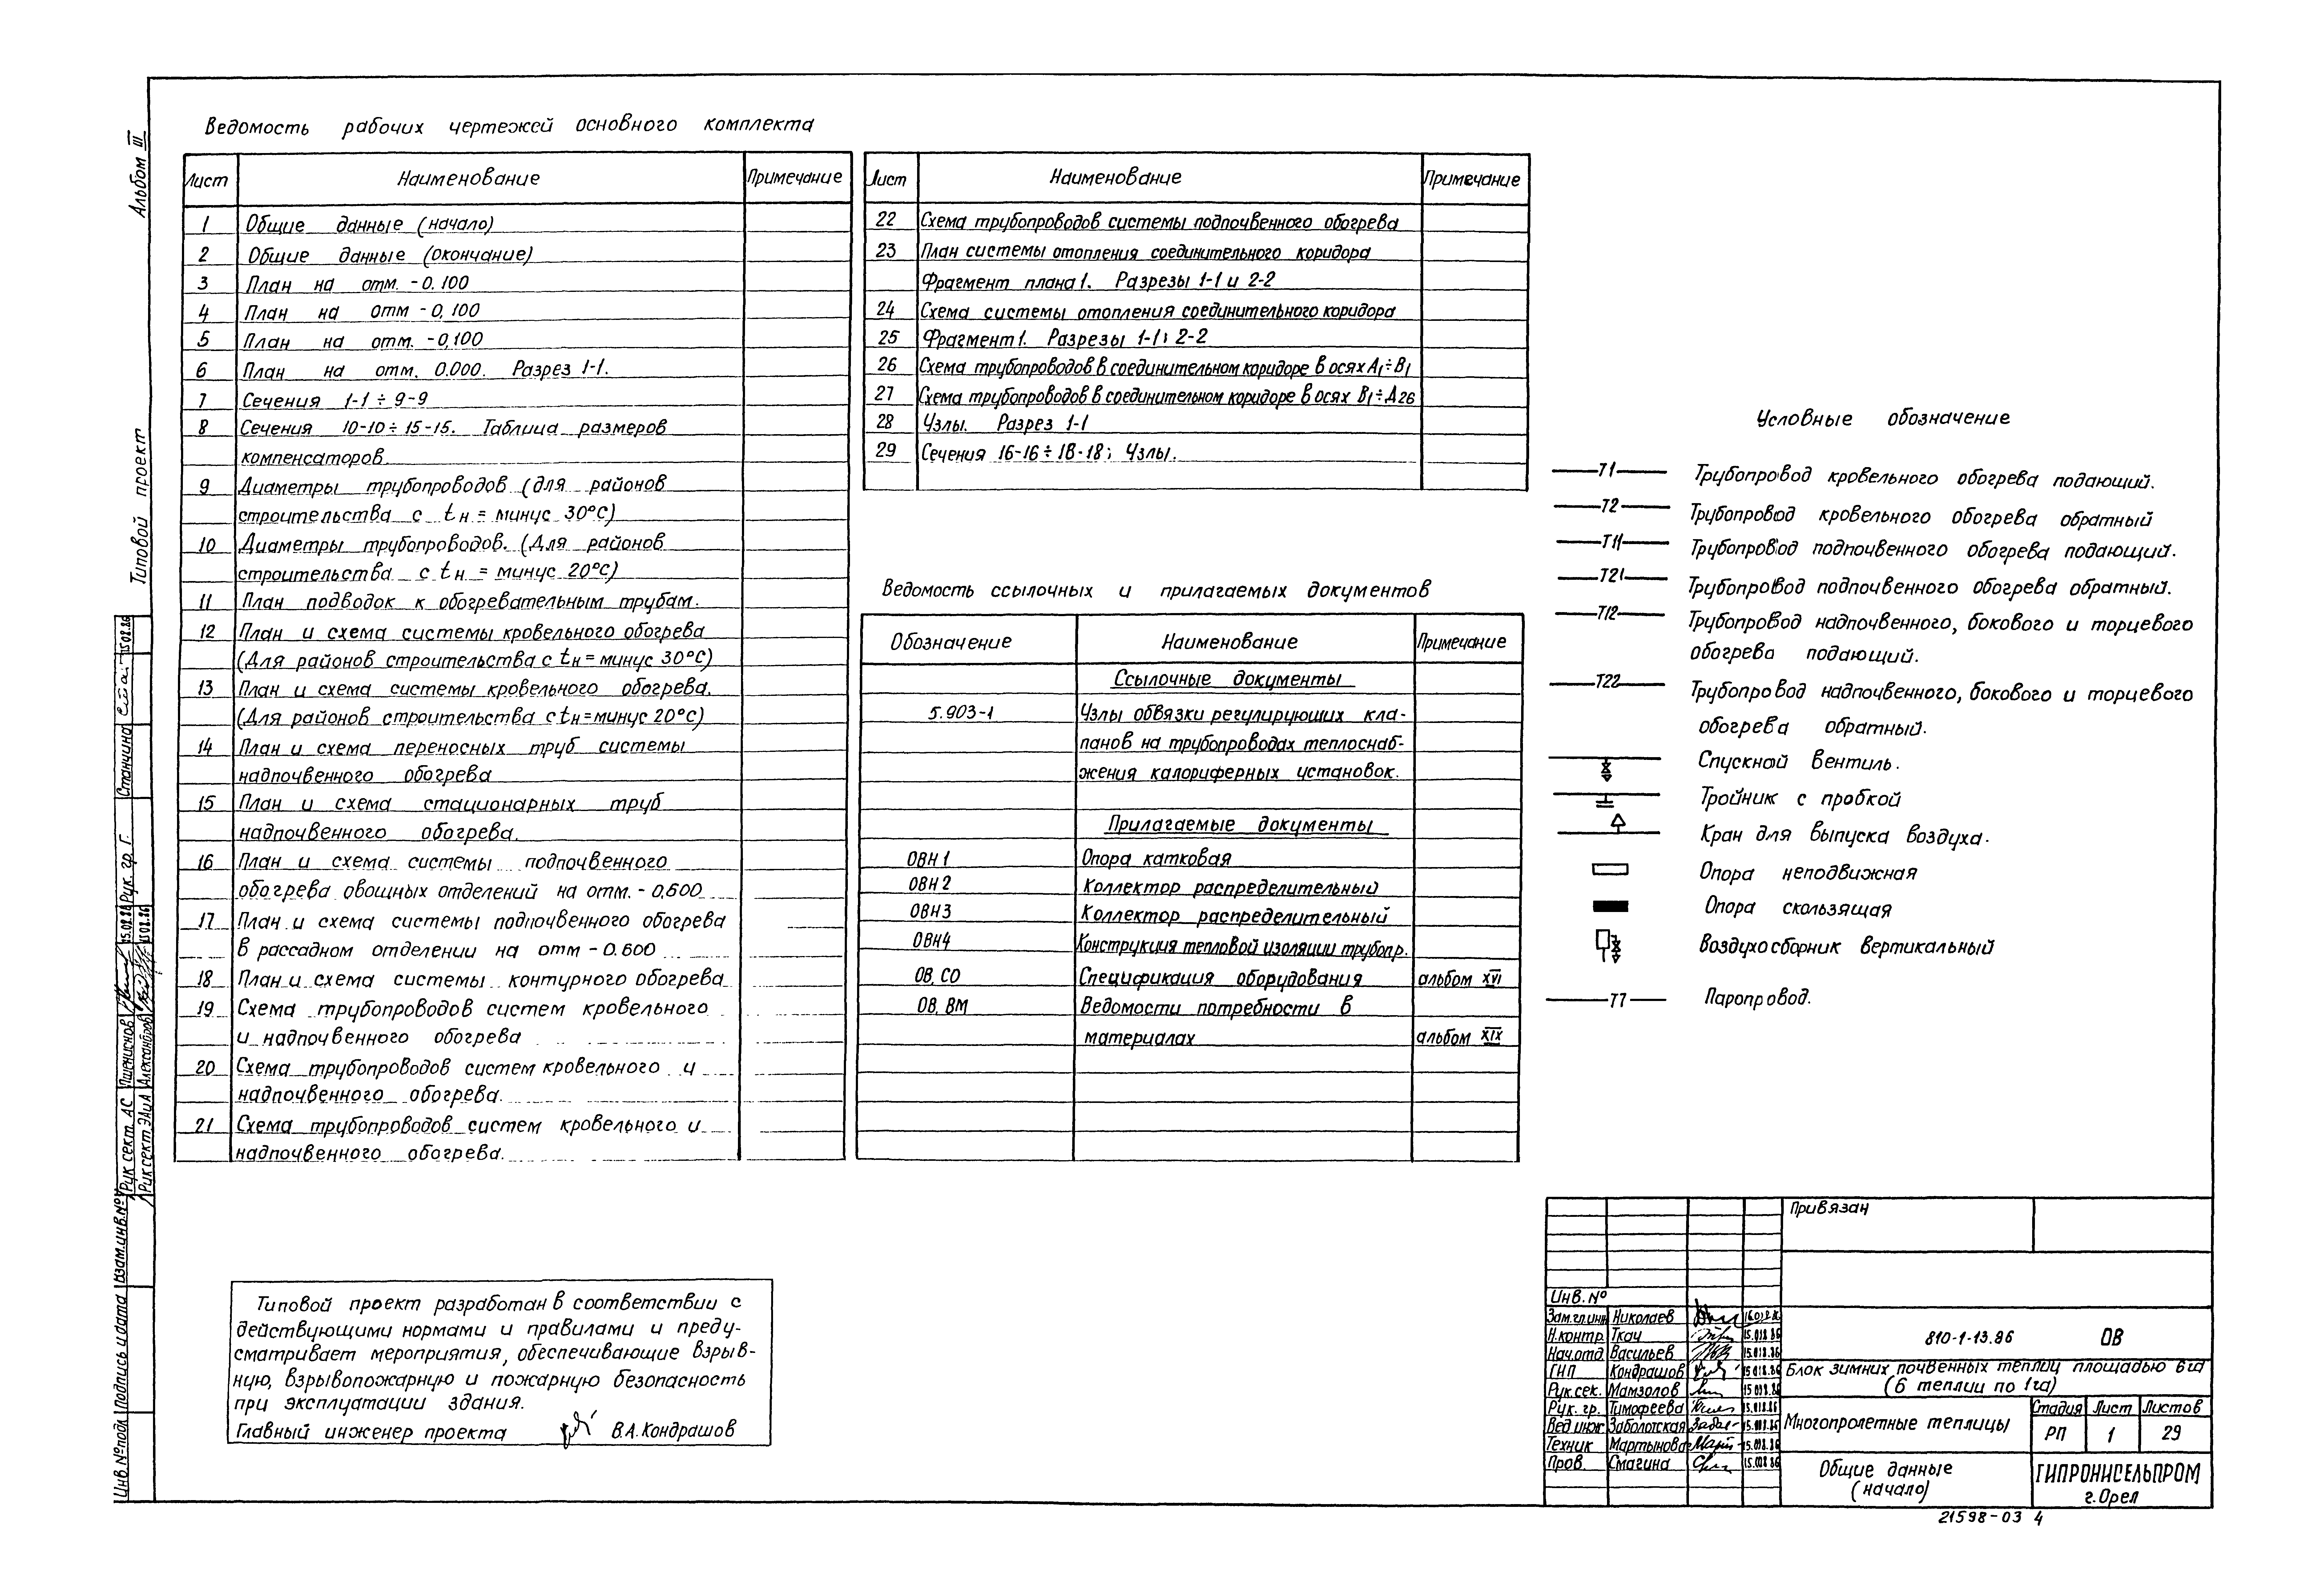 Альбом III
Типовой проект
Ведомость рабочих чертежей основного комплекта
Лист Наименование Примечание
1 Общие данные (начало)
2 Общие данные (окончание)
3 План на отм. -0.100
4 План на отм -0,100
5 План на отм. -0,100
6 План на отм. 0.000. Разрез 1-1.
7 Сечения 1-1 ÷ 9-9
8 Сечения 10-10 ÷ 15-15. Таблица размеров
компенсаторов.
9 Диаметры трубопроводов (для районов
строительства с tн = минус 30°С)
10 Диаметры трубопроводов. (Для районов
строительства с tн = минус 20°С)
11 План подводок к обогревательным трубам.
12 План и схема системы кровельного обогрева
(Для районов строительства с tн = минус 30°С)
13 План и схема системы кровельного обогрева.
(Для районов строительства с tн = минус 20°С)
14 План и схема переносных труб системы
надпочвенного обогрева
15 План и схема стационарных труб
надпочвенного обогрева.
16 План и схема системы подпочвенного
обогрева овощных отделений на отм. -0,600
17 План и схема системы подпочвенного обогрева
в рассадном отделении на отм -0.600
18 План и схема системы контурного обогрева
19 Схема трубопроводов систем кровельного
и надпочвенного обогрева
20 Схема трубопроводов систем кровельного и
надпочвенного обогрева.
21 Схема трубопроводов систем кровельного и
надпочвенного обогрева.
Лист Наименование Примечание
22 Схема трубопроводов системы подпочвенного обогрева
23 План системы отопления соединительного коридора
Фрагмент плана 1. Разрезы 1-1 и 2-2
24 Схема системы отопления соединительного коридора
25 Фрагмент 1. Разрезы 1-1; 2-2
26 Схема трубопроводов в соединительном коридоре в осях А1÷В1
27 Схема трубопроводов в соединительном коридоре в осях В1÷Д26
28 Узлы. Разрез 1-1
29 Сечения 16-16 ÷ 18-18; Узлы.
Ведомость ссылочных и прилагаемых документов
Обозначение Наименование Примечание
Ссылочные документы
5.903-1 Узлы обвязки регулирующих кла-
панов на трубопроводах теплоснаб-
жения калориферных установок.
Прилагаемые документы
ОВН 1 Опора катковая
ОВН 2 Коллектор распределительный
ОВН3 Коллектор распределительный
ОВН4 Конструкция тепловой изоляции трубопр.
ОВ, СО Спецификация оборудования альбом XVI
ОВ, ВМ Ведомости потребности в
материалах альбом XIX
Условные обозначение
Т1 Трубопровод кровельного обогрева подающий.
Т2 Трубопровод кровельного обогрева обратный
Т11 Трубопровод подпочвенного обогрева подающий.
Т21 Трубопровод подпочвенного обогрева обратный.
Т12 Трубопровод надпочвенного, бокового и торцевого
обогрева подающий.
Т22 Трубопровод надпочвенного, бокового и торцевого
обогрева обратный.
Спускной вентиль.
Тройник с пробкой
Кран для выпуска воздуха.
Опора неподвижная
Опора скользящая
Воздухосборник вертикальный
Т7 Паропровод.
Типовой проект разработан в соответствии с
действующими нормами и правилами и преду-
сматривает мероприятия, обеспечивающие взрыв-
ную, взрывопожарную и пожарную безопасность
при эксплуатации здания.
Главный инженер проекта В.А. Кондрашов
Привязан
Инв. №
Зам.гл.инж Николаев
Н.контр. Ткач
Нач.отд. Васильев
ГИП Кондрашов
Рук.сек. Мамзолов
Рук. гр. Тимофеева
Вед инж Заболотская
Техник Мартынова
Пров. Смагина
810-1-13.86 ОВ
Блок зимних почвенных теплиц площадью 6 га
(6 теплиц по 1 га)
Многопролетные теплицы
Стадия Лист Листов
РП 1 29
Общие данные
(начало)
ГИПРОНИСЕЛЬПРОМ
г. Орел
21598-03 4
Рук. гр. Г. Станчина 15.02.86
Рук сект. АС Пшениснов 15.02.86
Рук сект. ЭАиА Александров 15.02.86
Инв. № подл Подпись и дата Взам. инв. №